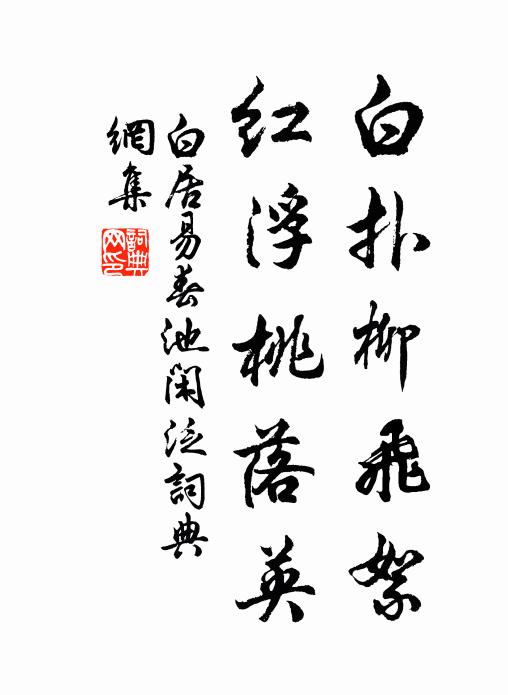 白扑柳飛絮
紅浮桃落英
白居易春池閑泛詞典
網集
詞典
网印